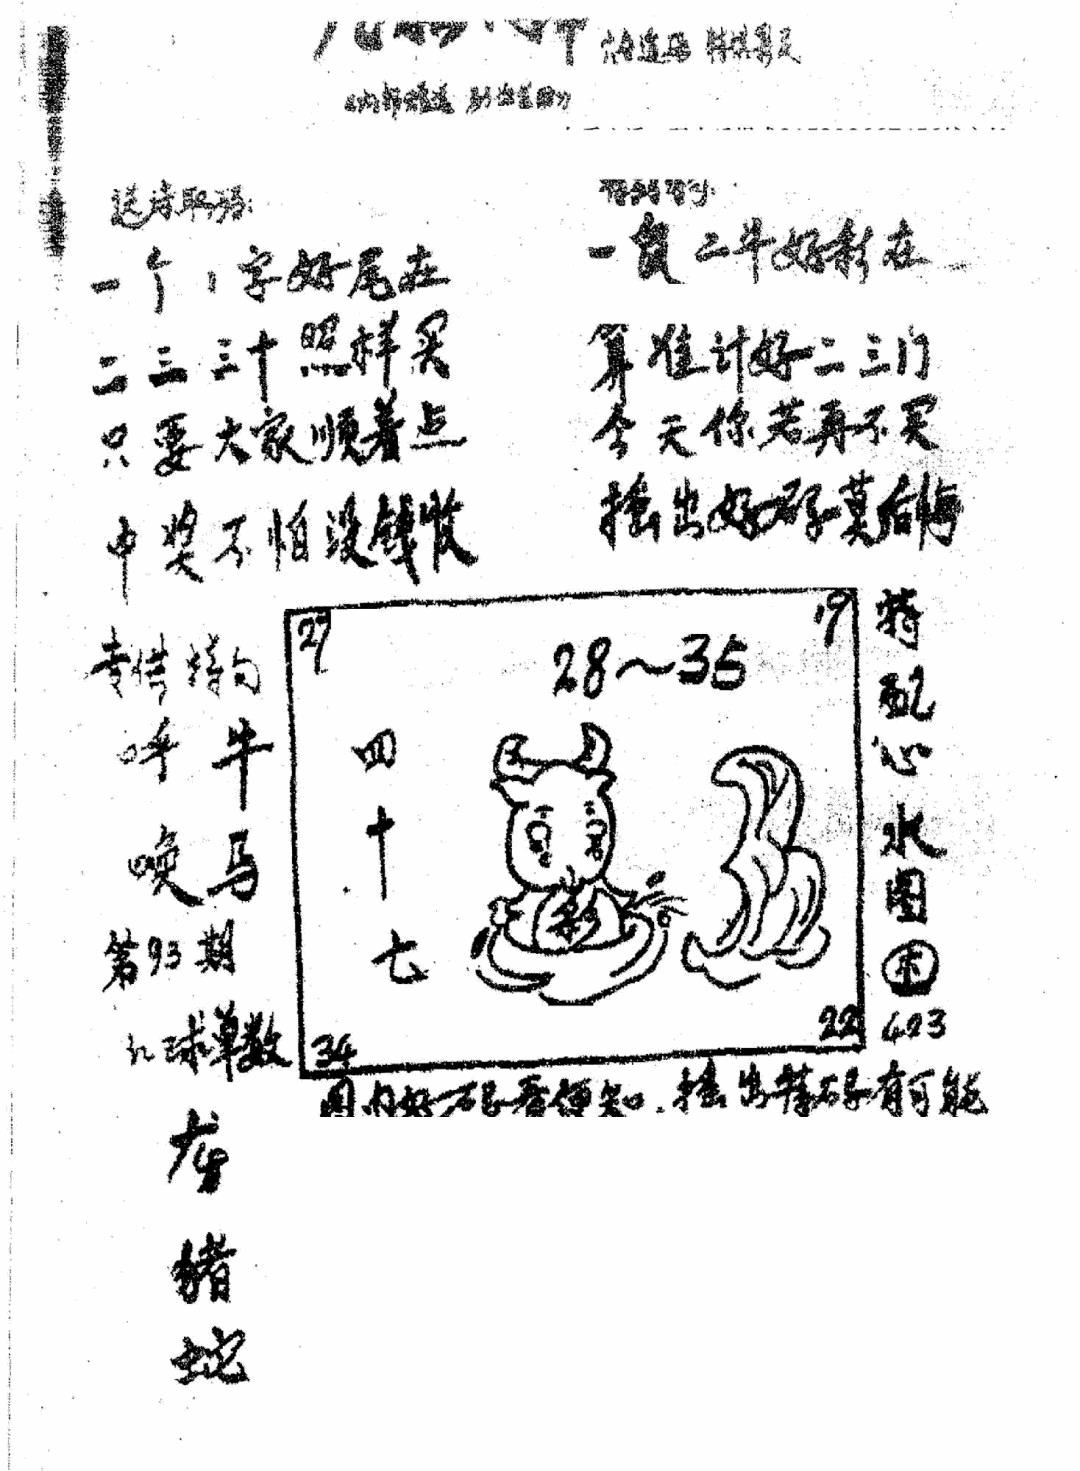 一个1字好尾在
二三三十照样买
只要大家顺着点
中奖不怕没钱收
一鼠二牛好彩在
算准计好二三门
今天你若再不买
摇出好码莫后悔
呼牛
唤马
第93期
红球单数
猪
蛇
27
19
28~35
四十七
彩
34
22
特配心水图
423
图内好码看便知.摇出特码有可能